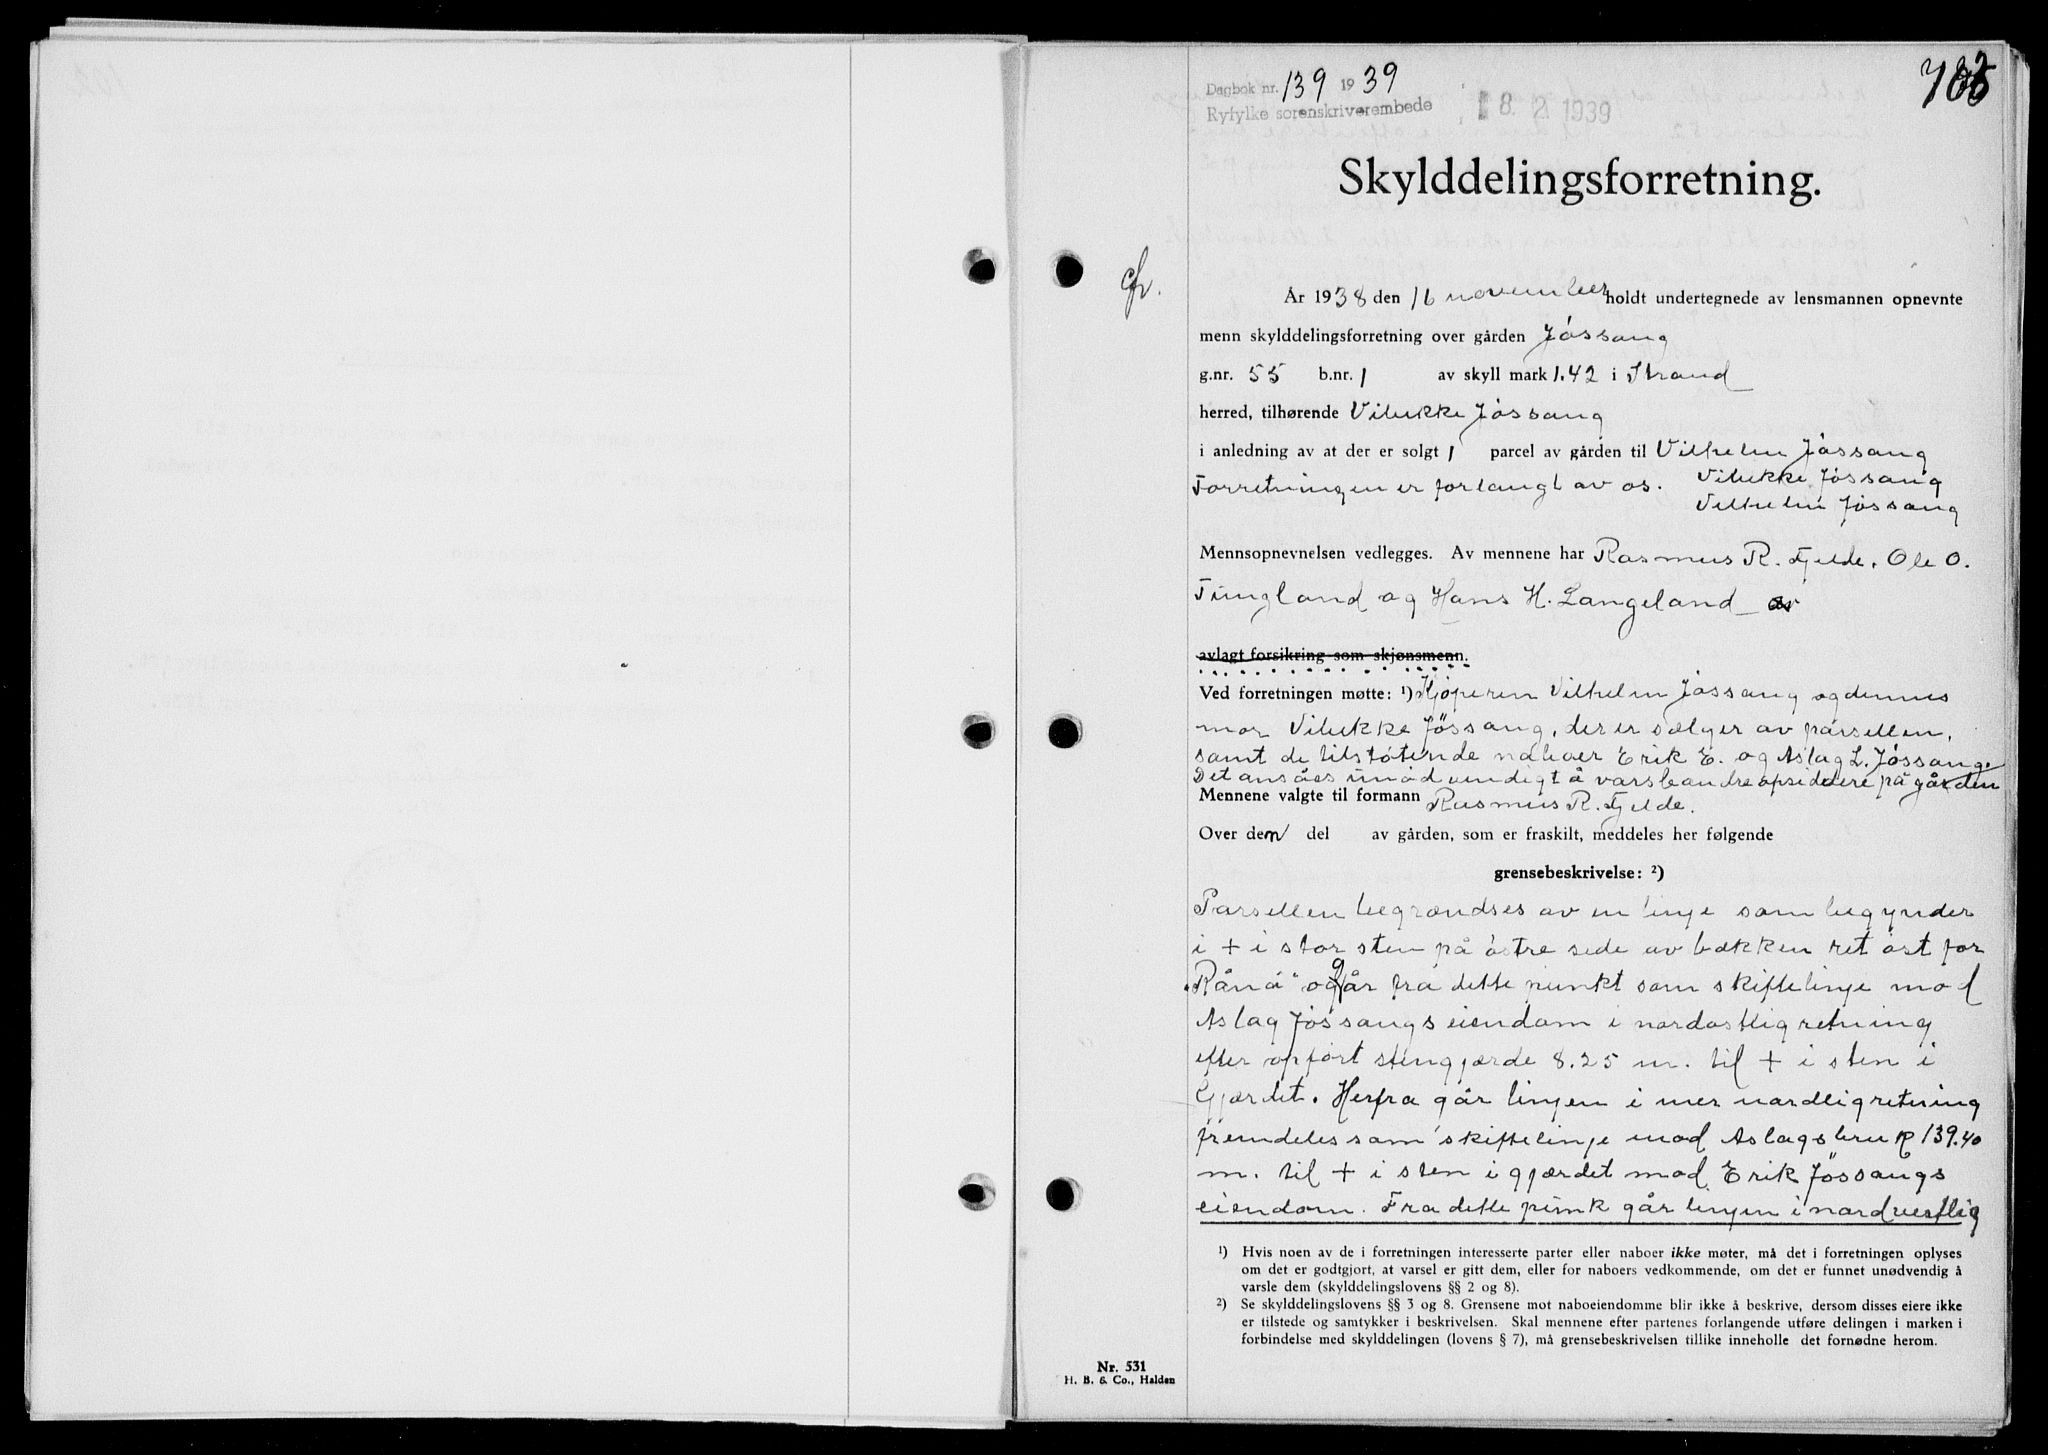 Dagbok nr. 139 1939
Ryfylke sorenskriverembede 18. 2. 1939
Skylddelingsforretning.
cfr.
År 1938 den 16 november holdt undertegnede av lensmannen opnevnte
menn skylddelingsforretning over gården Jössang
g.nr. 55 b.nr. 1 av skyll mark 1.42 i Strand
herred, tilhørende Vibekke Jössang
i anledning av at der er solgt 1 parcel av gården til Vilhelm Jössang
Forretningen er forlangt av os. Vibekke Jössang
Vilhelm Jössang
Mennsopnevnelsen vedlegges. Av mennene har Rasmus R. Fjelde, Ole O.
Tungland og Hans H. Langeland
avlagt forsikring som skjønsmenn.
Ved forretningen møtte: 1) Kjöperen Vilhelm Jössang og dennes
mor Vibekke Jössang, der er sælger av parsellen,
samt de tilstötende naboer Erik E. og Aslag L. Jössang.
Det ansåes unödvendigt å varsle andre opsiddere på gården
Mennene valgte til formann Rasmus R. Fjelde.
Over den del av gården, som er fraskilt, meddeles her følgende
grensebeskrivelse: 2)
Parsellen begrændses av en linje som begynder
i + i stor sten på östre side av bækken ret öst for
"Rånå" og går fra dette punkt som skiftelinje mod
Aslag Jössangs eiendom i nordostlig retning
efter opfört stengjærde 8.25 m. til + i sten i
Gjærdet. Herfra går linjen i mer nordlig retning
fremdeles som skiftelinje mod Aslags bruk 139.40
m. til + i sten i gjærdet mod Erik Jössangs
eiendom. Fra dette punk går linjen i nordvestlig
1) Hvis noen av de i forretningen interesserte parter eller naboer ikke møter, må det i forretningen oplyses
om det er godtgjort, at varsel er gitt dem, eller for naboers vedkommende, om det er funnet unødvendig å
varsle dem (skylddelingslovens §§ 2 og 8).
2) Se skylddelingslovens §§ 3 og 8. Grensene mot naboeiendomme blir ikke å beskrive, dersom disses eiere ikke
er tilstede og samtykker i beskrivelsen. Skal mennene efter partenes forlangende utføre delingen i marken i
forbindelse med skylddelingen (lovens § 7), må grensebeskrivelsen tillike inneholle det fornødne herom.
Nr. 531
H. B. & Co., Halden